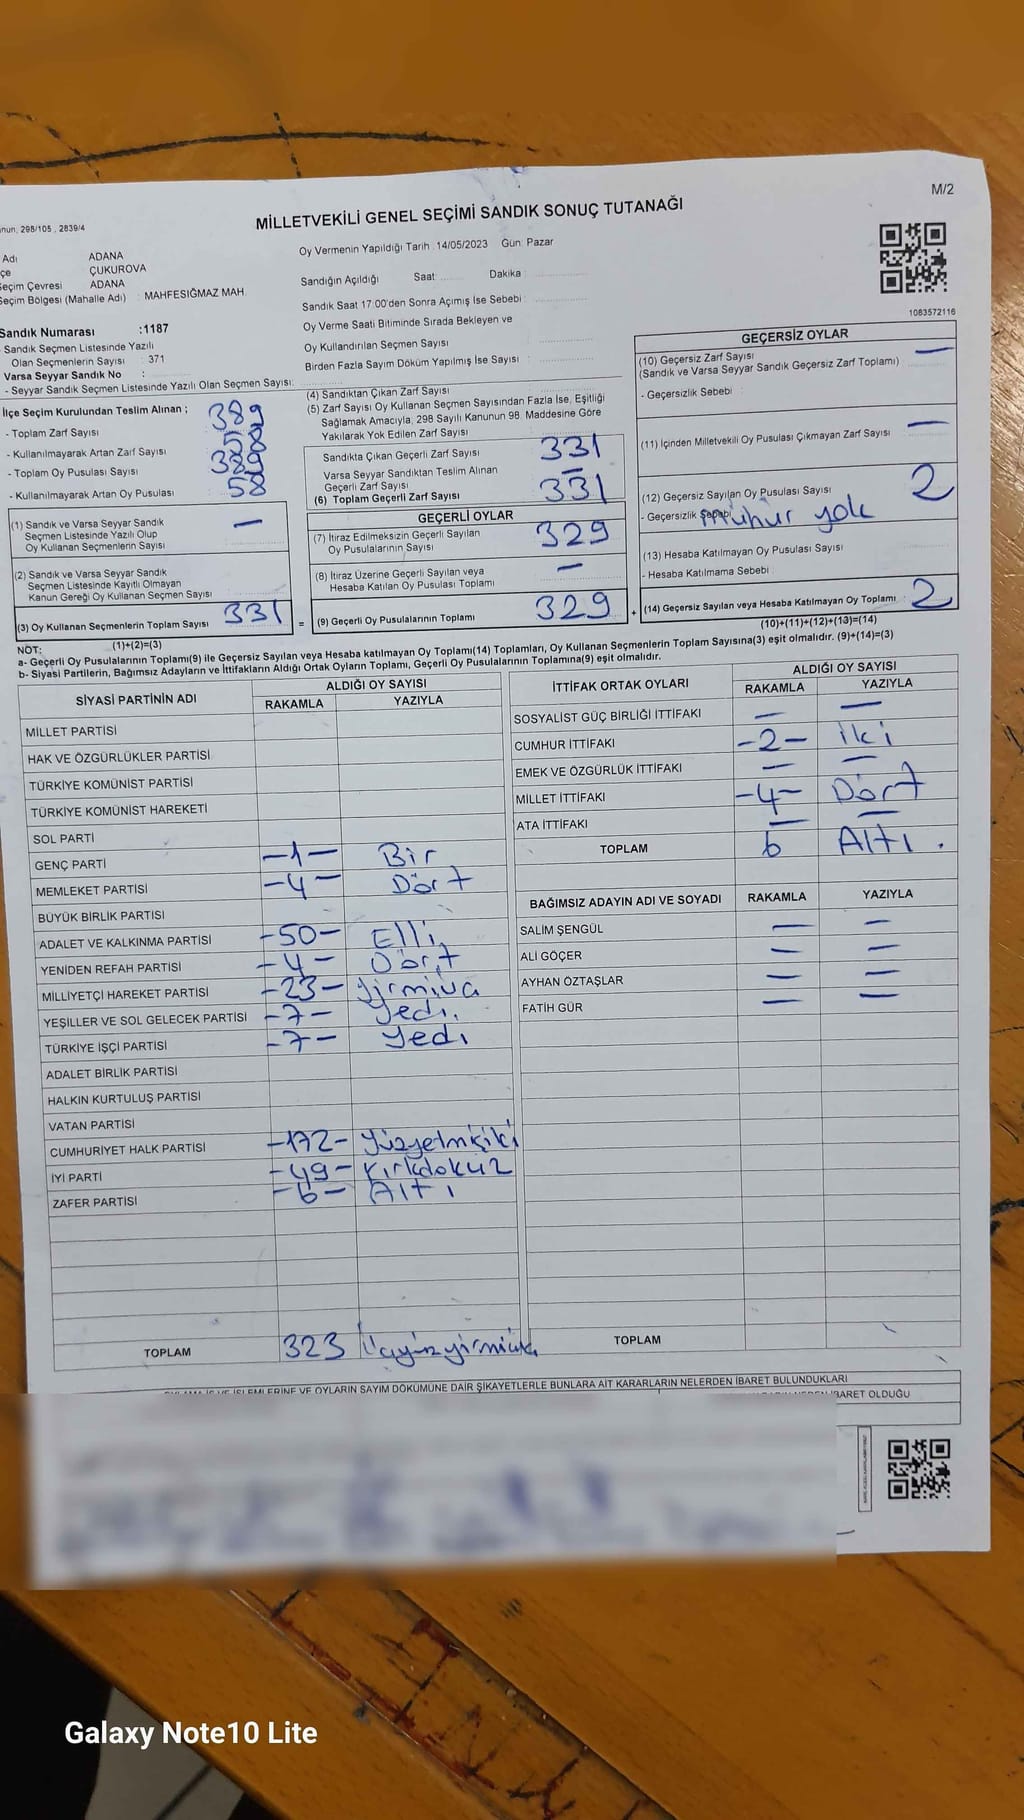 M/2
MİLLETVEKİLİ GENEL SEÇİMİ SANDIK SONUÇ TUTANAĞI
298/105 , 2839/4
Adı ADANA
ÇUKUROVA
Seçim Çevresi ADANA
Seçim Bölgesi (Mahalle Adı) : MAHFESIĞMAZ MAH.
Sandık Numarası :1187
- Sandık Seçmen Listesinde Yazılı
Olan Seçmenlerin Sayısı : 371
Varsa Seyyar Sandık No :
- Seyyar Sandık Seçmen Listesinde Yazılı Olan Seçmen Sayısı:
Oy Vermenin Yapıldığı Tarih : 14/05/2023 Gün: Pazar
Sandığın Açıldığı Saat Dakika :
Sandık Saat 17:00'den Sonra Açımış İse Sebebi :
Oy Verme Saati Bitiminde Sırada Bekleyen ve
Oy Kullandırılan Seçmen Sayısı :
Birden Fazla Sayım Döküm Yapılmış İse Sayısı :
1083572116
İlçe Seçim Kurulundan Teslim Alınan ;
- Toplam Zarf Sayısı 389
- Kullanılmayarak Artan Zarf Sayısı 58
- Toplam Oy Pusulası Sayısı 389
- Kullanılmayarak Artan Oy Pusulası 58
(1) Sandık ve Varsa Seyyar Sandık
Seçmen Listesinde Yazılı Olup
Oy Kullanan Seçmenlerin Sayısı —
(2) Sandık ve Varsa Seyyar Sandık
Seçmen Listesinde Kayıtlı Olmayan
Kanun Gereği Oy Kullanan Seçmen Sayısı
(3) Oy Kullanan Seçmenlerin Toplam Sayısı 331 =
(1)+(2)=(3)
(4) Sandıktan Çıkan Zarf Sayısı
(5) Zarf Sayısı Oy Kullanan Seçmen Sayısından Fazla İse, Eşitliği
Sağlamak Amacıyla, 298 Sayılı Kanunun 98. Maddesine Göre
Yakılarak Yok Edilen Zarf Sayısı
Sandıkta Çıkan Geçerli Zarf Sayısı 331
Varsa Seyyar Sandıktan Teslim Alınan
Geçerli Zarf Sayısı —
(6) Toplam Geçerli Zarf Sayısı 331
GEÇERLİ OYLAR
(7) İtiraz Edilmeksizin Geçerli Sayılan
Oy Pusulalarının Sayısı 329
(8) İtiraz Üzerine Geçerli Sayılan veya
Hesaba Katılan Oy Pusulası Toplamı —
(9) Geçerli Oy Pusulalarının Toplamı 329 +
GEÇERSİZ OYLAR
(10) Geçersiz Zarf Sayısı —
(Sandık ve Varsa Seyyar Sandık Geçersiz Zarf Toplamı)
- Geçersizlik Sebebi :
(11) İçinden Milletvekili Oy Pusulası Çıkmayan Zarf Sayısı —
(12) Geçersiz Sayılan Oy Pusulası Sayısı 2
- Geçersizlik Sebebi mühür yok
(13) Hesaba Katılmayan Oy Pusulası Sayısı
- Hesaba Katılmama Sebebi :
(14) Geçersiz Sayılan veya Hesaba Katılmayan Oy Toplamı : 2
(10)+(11)+(12)+(13)=(14)
NOT:
a- Geçerli Oy Pusulalarının Toplamı(9) ile Geçersiz Sayılan veya Hesaba katılmayan Oy Toplamı(14) Toplamları, Oy Kullanan Seçmenlerin Toplam Sayısına(3) eşit olmalıdır. (9)+(14)=(3)
b- Siyasi Partilerin, Bağımsız Adayların ve İttifakların Aldığı Ortak Oyların Toplamı, Geçerli Oy Pusulalarının Toplamına(9) eşit olmalıdır.
SİYASİ PARTİNİN ADI ALDIĞI OY SAYISI
RAKAMLA YAZIYLA
MİLLET PARTİSİ
HAK VE ÖZGÜRLÜKLER PARTİSİ
TÜRKİYE KOMÜNİST PARTİSİ
TÜRKİYE KOMÜNİST HAREKETİ
SOL PARTİ
GENÇ PARTİ -1- Bir
MEMLEKET PARTİSİ -4- Dört
BÜYÜK BİRLİK PARTİSİ
ADALET VE KALKINMA PARTİSİ -50- Elli
YENİDEN REFAH PARTİSİ -4- Dört
MİLLİYETÇİ HAREKET PARTİSİ -23-
YEŞİLLER VE SOL GELECEK PARTİSİ -7- Yedi
TÜRKİYE İŞÇİ PARTİSİ -7- Yedi
ADALET BİRLİK PARTİSİ
HALKIN KURTULUŞ PARTİSİ
VATAN PARTİSİ
CUMHURİYET HALK PARTİSİ -172- Yüzyetmişiki
İYİ PARTİ -49- Kırkdokuz
ZAFER PARTİSİ -6- Altı
TOPLAM 323
İTTİFAK ORTAK OYLARI ALDIĞI OY SAYISI
RAKAMLA YAZIYLA
SOSYALİST GÜÇ BİRLİĞİ İTTİFAKI — —
CUMHUR İTTİFAKI -2- iki
EMEK VE ÖZGÜRLÜK İTTİFAKI — —
MİLLET İTTİFAKI -4- Dört
ATA İTTİFAKI — —
TOPLAM 6 Altı .
BAĞIMSIZ ADAYIN ADI VE SOYADI RAKAMLA YAZIYLA
SALİM ŞENGÜL — —
ALİ GÖÇER — —
AYHAN ÖZTAŞLAR — —
FATİH GÜR — —
TOPLAM
VE OYLARIN SAYIM DÖKÜMÜNE DAİR ŞİKAYETLERLE BUNLARA AİT KARARLARIN NELERDEN İBARET BULUNDUKLARI
İBARET OLDUĞU
Galaxy Note10 Lite